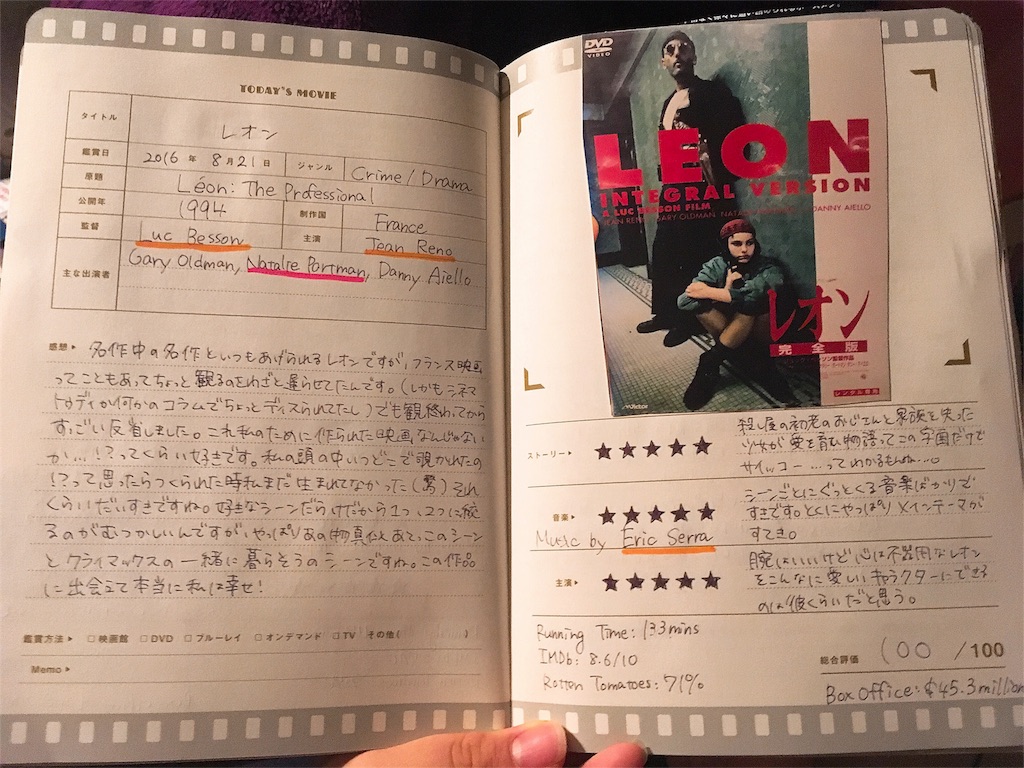 TODAY'S MOVIE
タイトル レオン
鑑賞日 2016年 8月21日 ジャンル Crime/Drama
原題 Léon: The Professional
公開年 1994 制作国 France
監督 Luc Besson 主演 Jean Reno
主な出演者 Gary Oldman, Natalie Portman, Danny Aiello
感想▶ 名作中の名作といつもあげられるレオンですが、フランス映画
ってこともあってちょっと観るのをわざと遅らせてたんです。(しかも
か何かのコラムでちょっとディスられてたし)でも観終わってから
すっごい反省しました。これ私のために作られた映画なんじゃない
か…!?ってくらい好きです。私の頭の中いつどこで覗かれたの
!?って思ったらつくられた時私まだ生まれてなかった(驚)それ
くらいだいすきですね。好きなシーンだらけだから1つ、2つに絞
るのがむつかしいんですが、やっぱりあの物真似あてっこのシーン
とクライマックスの一緒に暮らそうのシーンですね。この作品
に出会えて本当に私は幸せ!
鑑賞方法▶ □映画館 □DVD □ブルーレイ □オンデマンド □TV その他( )
Memo▶
DVD
VIDEO
LEON
INTEGRAL VERSION
A LUC BESSON FILM
JEAN RENO GARY OLDMAN NATALIE DANNY AIELLO
レオン
完全版
レンタル専用
Victor
ストーリー▶ ★★★★★
殺し屋の初老のおじさんと家族を失った
少女が愛を育む物語ってこの字面だけで
サイッコー…ってわかるもんね…。
音楽▶ ★★★★★
Music by Eric Serra
シーンごとにぐっとくる音楽ばかりで
すきです。とくにやっぱりメインテーマが
すてき。
主演▶ ★★★★★
腕はいいけど心は不器用なレオン
をこんなに愛しいキャラクターにできる
のは彼くらいだと思う。
Running Time: 133mins
IMDb: 8.6/10
Rotten Tomatoes: 71%
総合評価 100 /100
Box Office: $45.3million